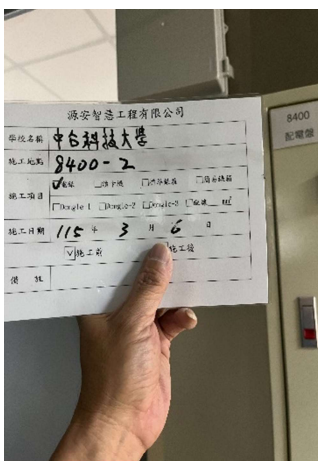 源安智慧工程有限公司
學校名稱 中台科技大學
施工地點 8400-2
施工項目
□Dongle-1 □Dongle-2 □Dongle-3
施工日期 115 年 3 月 6 日
☑施工前 施工後
備 註
8400
配電盤